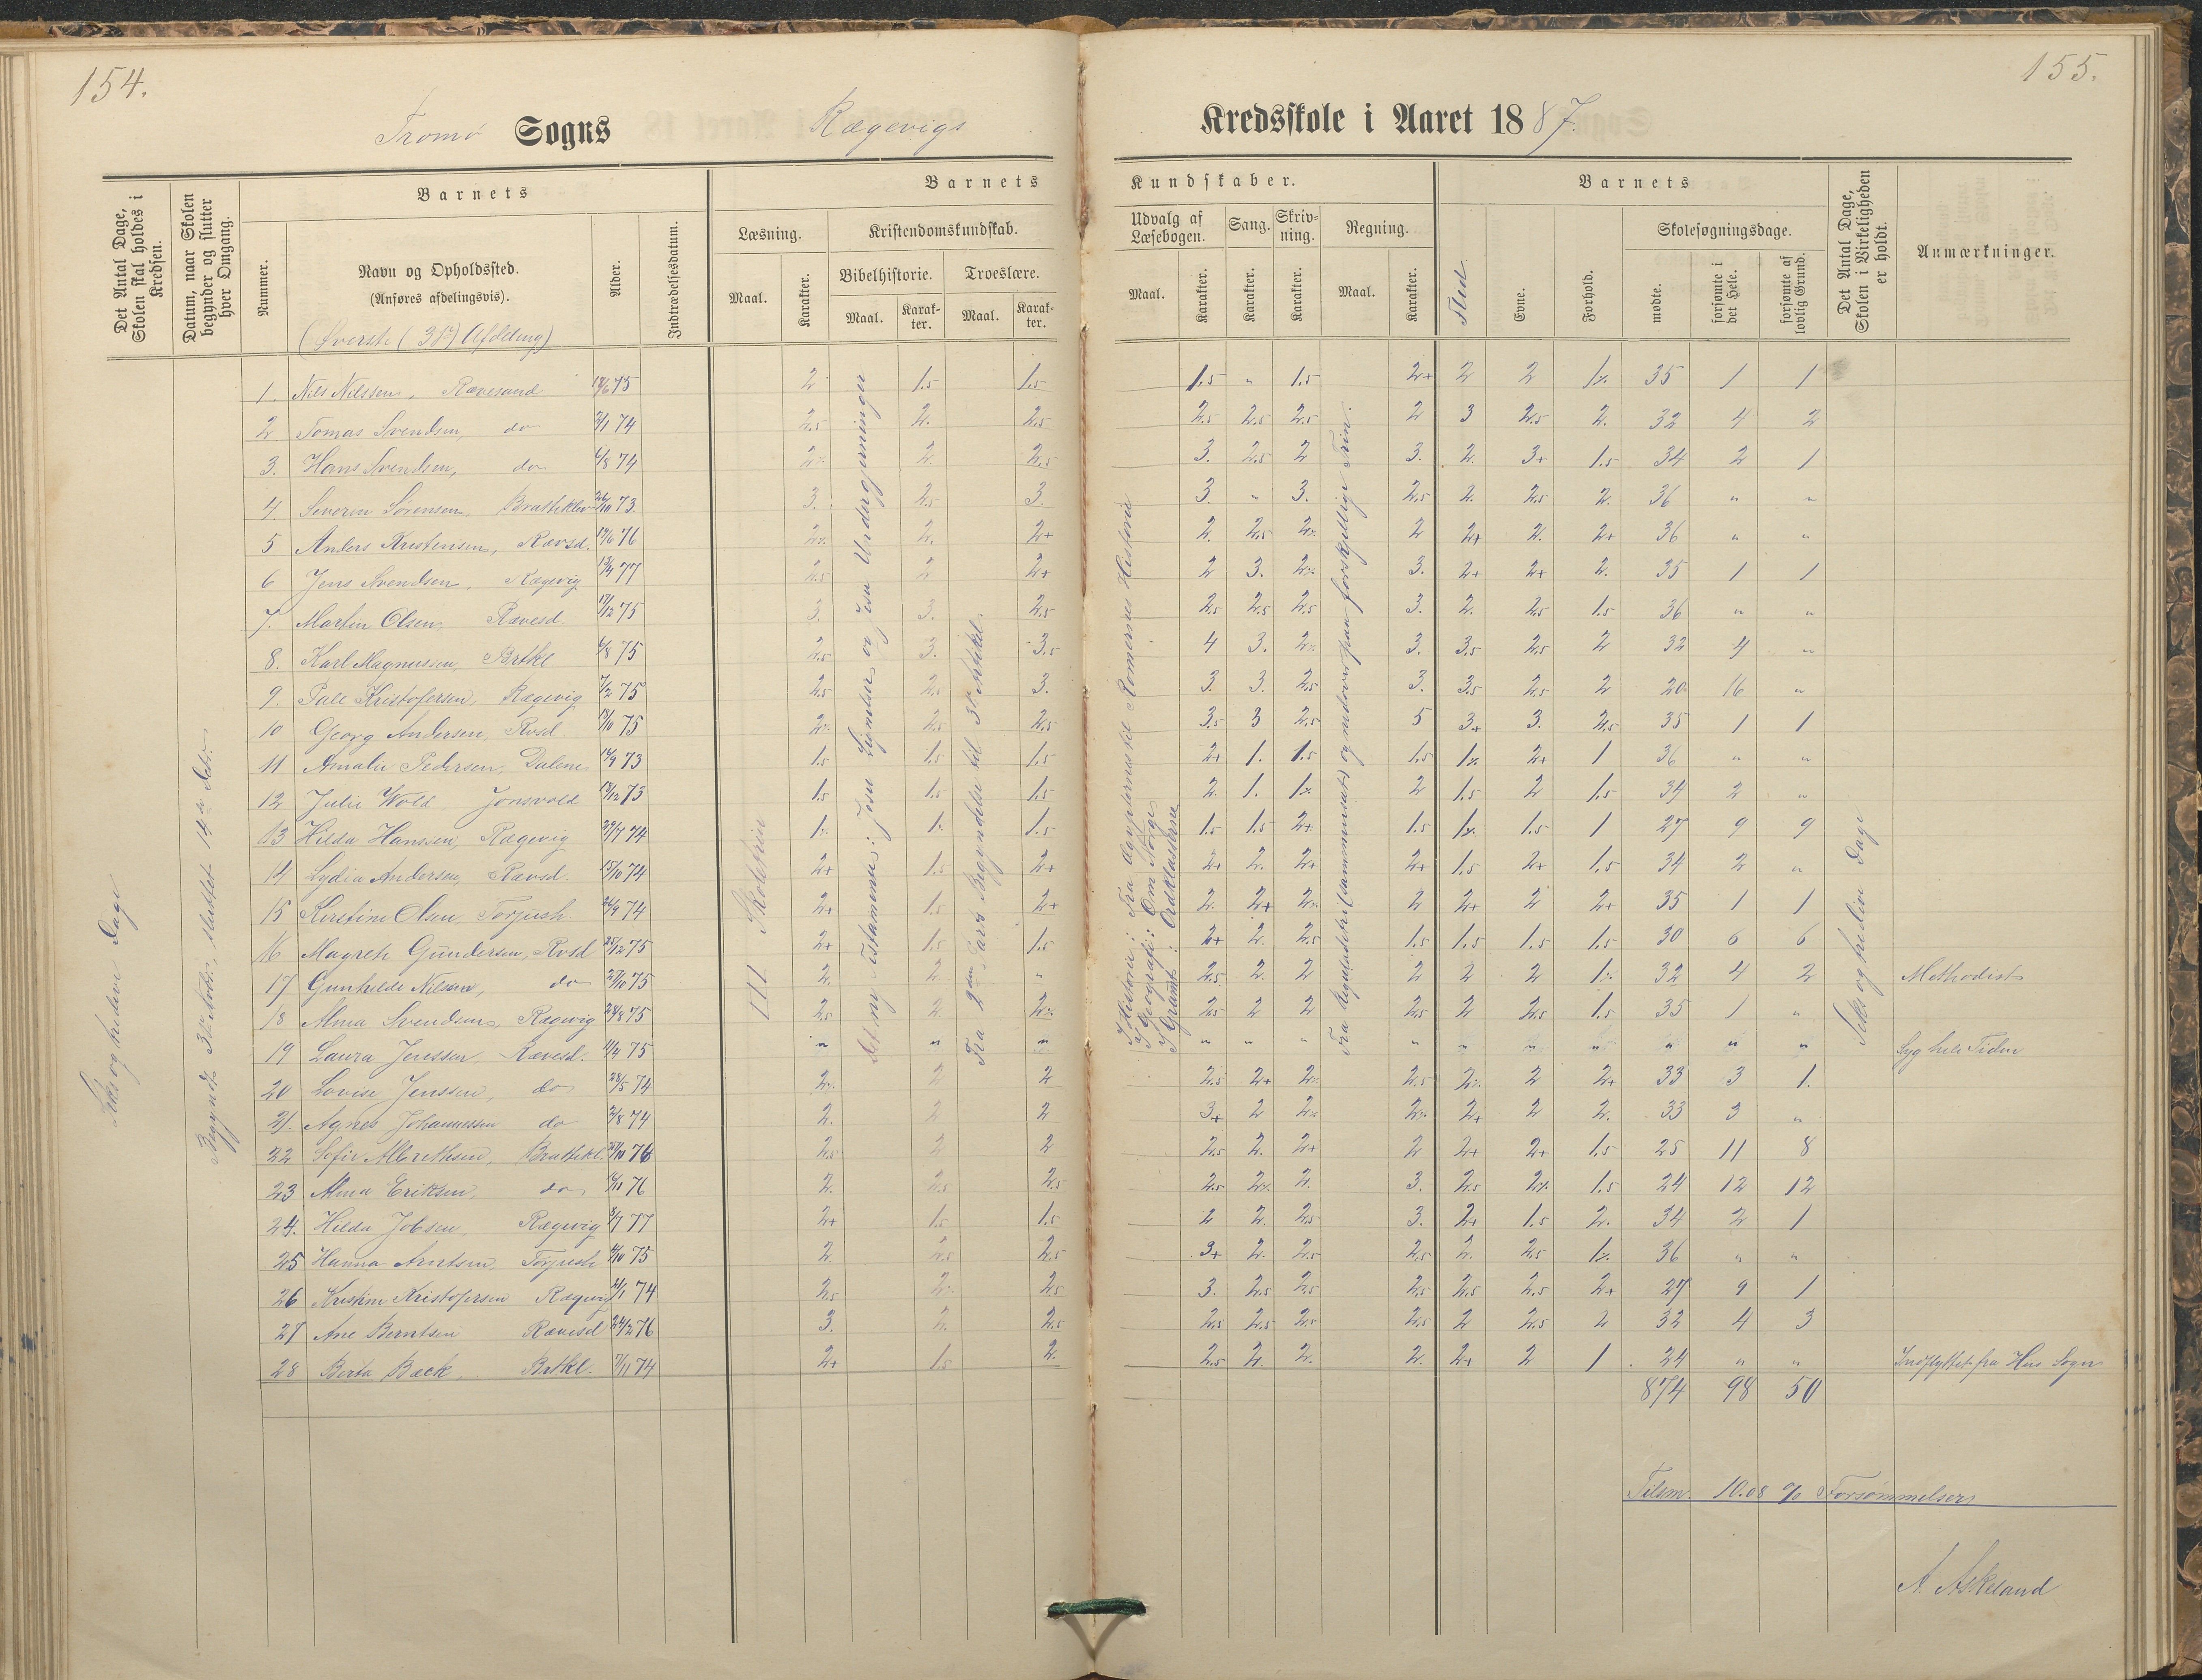 154.
155.
Tromø Sogns Rægevigs Kredsskole i Aaret 1887.
Det Antal Dage, Skolen skal holdes i Kredsen.
Datum, naar Skolen begynder og slutter hver Omgang.
Barnets
Nummer.
Navn og Opholdssted.
(Anføres afdelingsvis).
(Øverste (3die) Afdeling)
Alder.
Indtrædelsesdatum.
Barnets Kundskaber.
Læsning.
Maal. Karakter.
Kristendomskundskab.
Bibelhistorie. Troeslære.
Maal. Karakter. Maal. Karakter.
Udvalg af Læsebogen. Sang. Skrivning. Regning.
Maal. Karakter. Karakter. Karakter. Maal. Karakter.
Barnets
Flid. Evne. Forhold.
Skolesøgningsdage.
mødte. forsømte i det Hele. forsømte af lovlig Grund.
Det Antal Dage, Skolen i Virkeligheden er holdt.
Anmærkninger.
Seks og tredive Dage
III Skoletrin
Seks og tredive Dage
I Historie: Fra Ægypterne til Romernes Historie
I Geografi: Om Norge
I Gramt: Ordklasserne
1. Nils Nilssen, Rævesand 75 2 1.5 1.5 1.5 " 1.5 2+ 2 2 1% 35 1 1
2 Tomas Svendsen, do 2/1 74 2.5 2. 2.5 2.5 2.5 2.5 2 3 2.5 2. 32 4 2
3. Hans Svendsen, do 6/8 74 2% 2. 2.5 3. 2.5 2 3. 2. 3+ 1.5 34 2 1
4. Severin Sørensen, Brattekleiv 73 3. 2.5 3. 3. " 3. 2.5 2. 2.5 2. 36 " "
5 Anders Kristensen, Rævsd. 76 2% 2. 2+ 2. 2.5 2% 2 2+ 2. 2+ 36 " "
6 Jens Svendsen, Rægevig 77 2.5 2 2+ 2 3. 2% 3. 2+ 2+ 2. 35 1 1
7. Martin Olsen, Rævesd. 17/12 75 3. 3. 2.5 2.5 2.5 2.5 3. 2. 2.5 1.5 36 " "
8. Karl Magnussen, Brtkl 75 2.5 3. 3.5 4 3. 2% 3. 3.5 2.5 2 32 4 "
9. Pale Kristofersen, Rægevig 7/2 75 2.5 2.5 3. 3. 3. 2.5 3. 3.5 2.5 2 20 16 "
10 Georg Andersen, Rvsd. 75 2% 2.5 2.5 3.5 3 2.5 5 3+ 3. 2.5 35 1 1
11 Amalie Pedersen, Dalene 14/9 73 1.5 1.5 1.5 2+ 1. 1.5 1.5 1% 2+ 1 36 " "
12 Julie Wold Jonsvold 73 1.5 1.5 1.5 2. 1. 1% 2 1.5 2 1.5 34 2 "
13 Hilda Hanssen, Rægevig 29/7 74 1% 1% 1.5 1.5 1.5 2+ 1.5 1% 1.5 1 27 9 9
14 Lydia Andersen, Rævsd. 15/10 74 2+ 1.5 2+ 2+ 2. 2+ 2+ 1.5 2+ 1.5 34 2 "
15 Kirstine Olsen, Torjush. 26/9 74 2+ 1.5 2+ 2. 2+ 2% 2 2+ 2 2+ 35 1 1
16 Magreth Gundersen, Rvsd 25/12 75 2+ 1.5 1.5 2+ 2. 2.5 1.5 1.5 1.5 1.5 30 6 6
17 Gunhilde Nilsen, do 27/10 75 2. 2. " 2.5 2. 2 2 2 2 1% 32 4 2 Methodist
18 Alma Svendsen, Rægevig 24/8 75 2.5 2. 2% 2.5 2 2 2.5 2 2.5 1.5 35 1 "
19 Laura Jenssen, Rævesd. 75 " " " " " " " " " " " " " Syg hele Tiden
20 Lovise Jenssen, do 28/5 74 2% 2 2 2.5 2+ 2% 2.5 2% 2 2+ 33 3 1.
21. Agnes Johannessen do 2/8 74 2. 2 2 3+ 2 2% 2% 2+ 2 2. 33 3 "
22 Sofie Albrethsen, Brattekl. 76 2.5 2 2 2.5 2. 2+ 2 2+ 2+ 1.5 25 11 8
23 Alma Eriksen, do 76 2. 2.5 2.5 2.5 2% 2. 3. 2.5 2% 1.5 24 12 12
24. Hilda Jobsen, Rægevig 3/7 77 2+ 1.5 1.5 2 2. 2.5 3. 2+ 1.5 2. 34 2 1
25 Hanna Arntsen, Torjush 75 2. 2.5 2.5 3+ 2. 2.5 2.5 2. 2.5 1% 36 " "
26 Kristine Kristofersen Rægevig 74 2.5 2% 2.5 3. 2.5 2.5 2.5 2.5 2.5 2+ 27 9 1
27 Ane Berntsen Rævesd 24/2 76 3. 2. 2.5 2.5 2.5 2.5 2.5 2 2.5 2 32 4 3
28 Berta Back, Brtkl. 7/11 74 2+ 1.5 2. 2.5 2. 2. 2. 2+ 2 1 24 " " Indflyttet fra His Sogn
874 98 50
Tilsm. 10.08 % Forsømmelser
A. Askeland